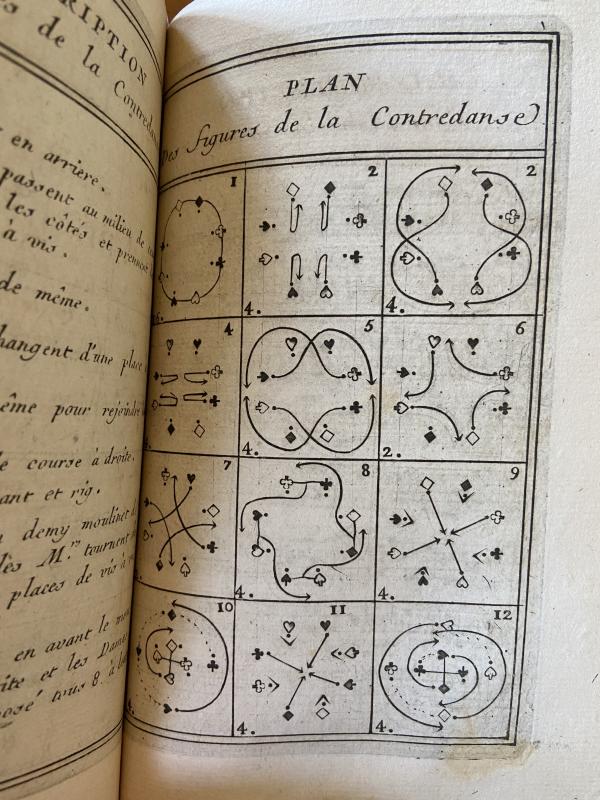 RIPTION
de la Contredans
en arriere.
passent au milieu de
les côtés et prennent
à vis.
de même.
hangent d'une place
ême pour rejoindre
course à droite.
ant et rig.
demy moulinet
M.rs tournent
places de vis à
en avant le
ite et les Dames
tous 8 à
PLAN
Des figures de la Contredanse
1
2
4.
2
4.
4
5
4.
6
2.
7
8
4.
9
4.
10
4.
11
4.
12
4.